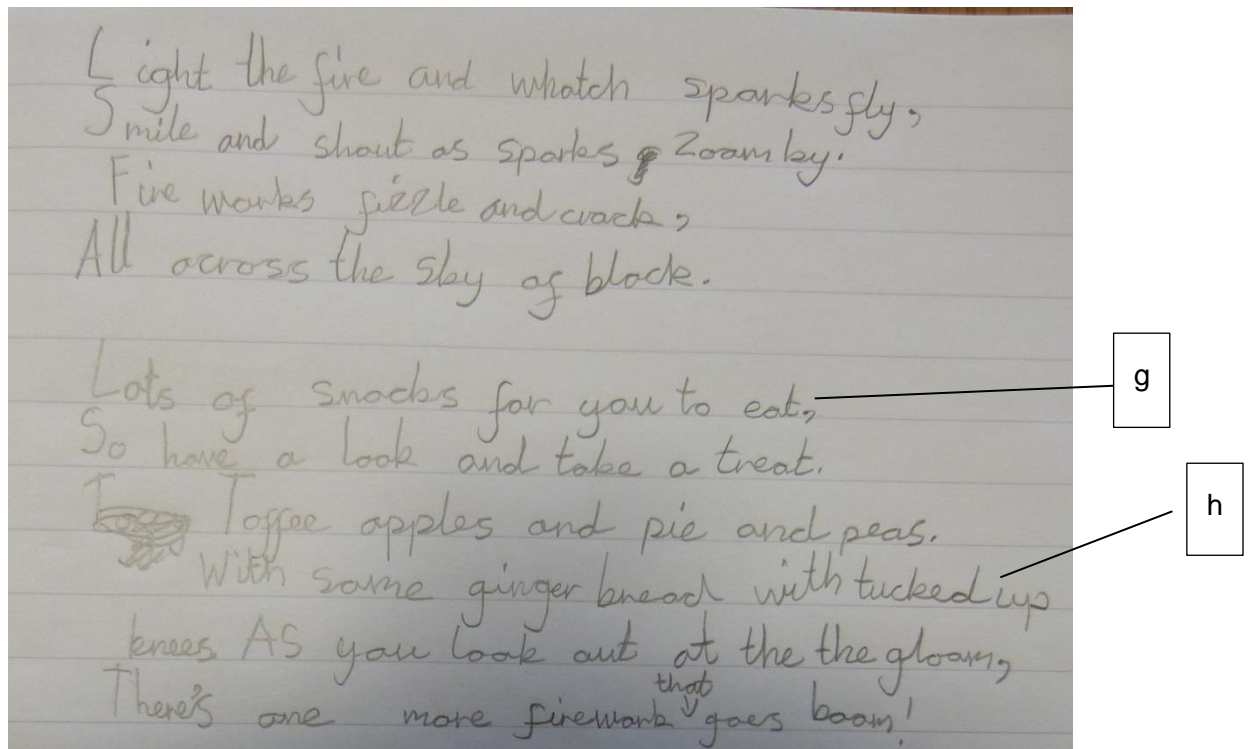 Light the fire and whatch sparks fly,
Smile and shout as sparks zoom by.
Fire works fizzle and crack,
All across the sky of black.
Lots of snacks for you to eat,
g
So have a look and take a treat.
h
Toffee apples and pie and peas.
With some ginger bread with tucked up
knees AS you look out at the the gloom,
There's one more firework that goes boom!